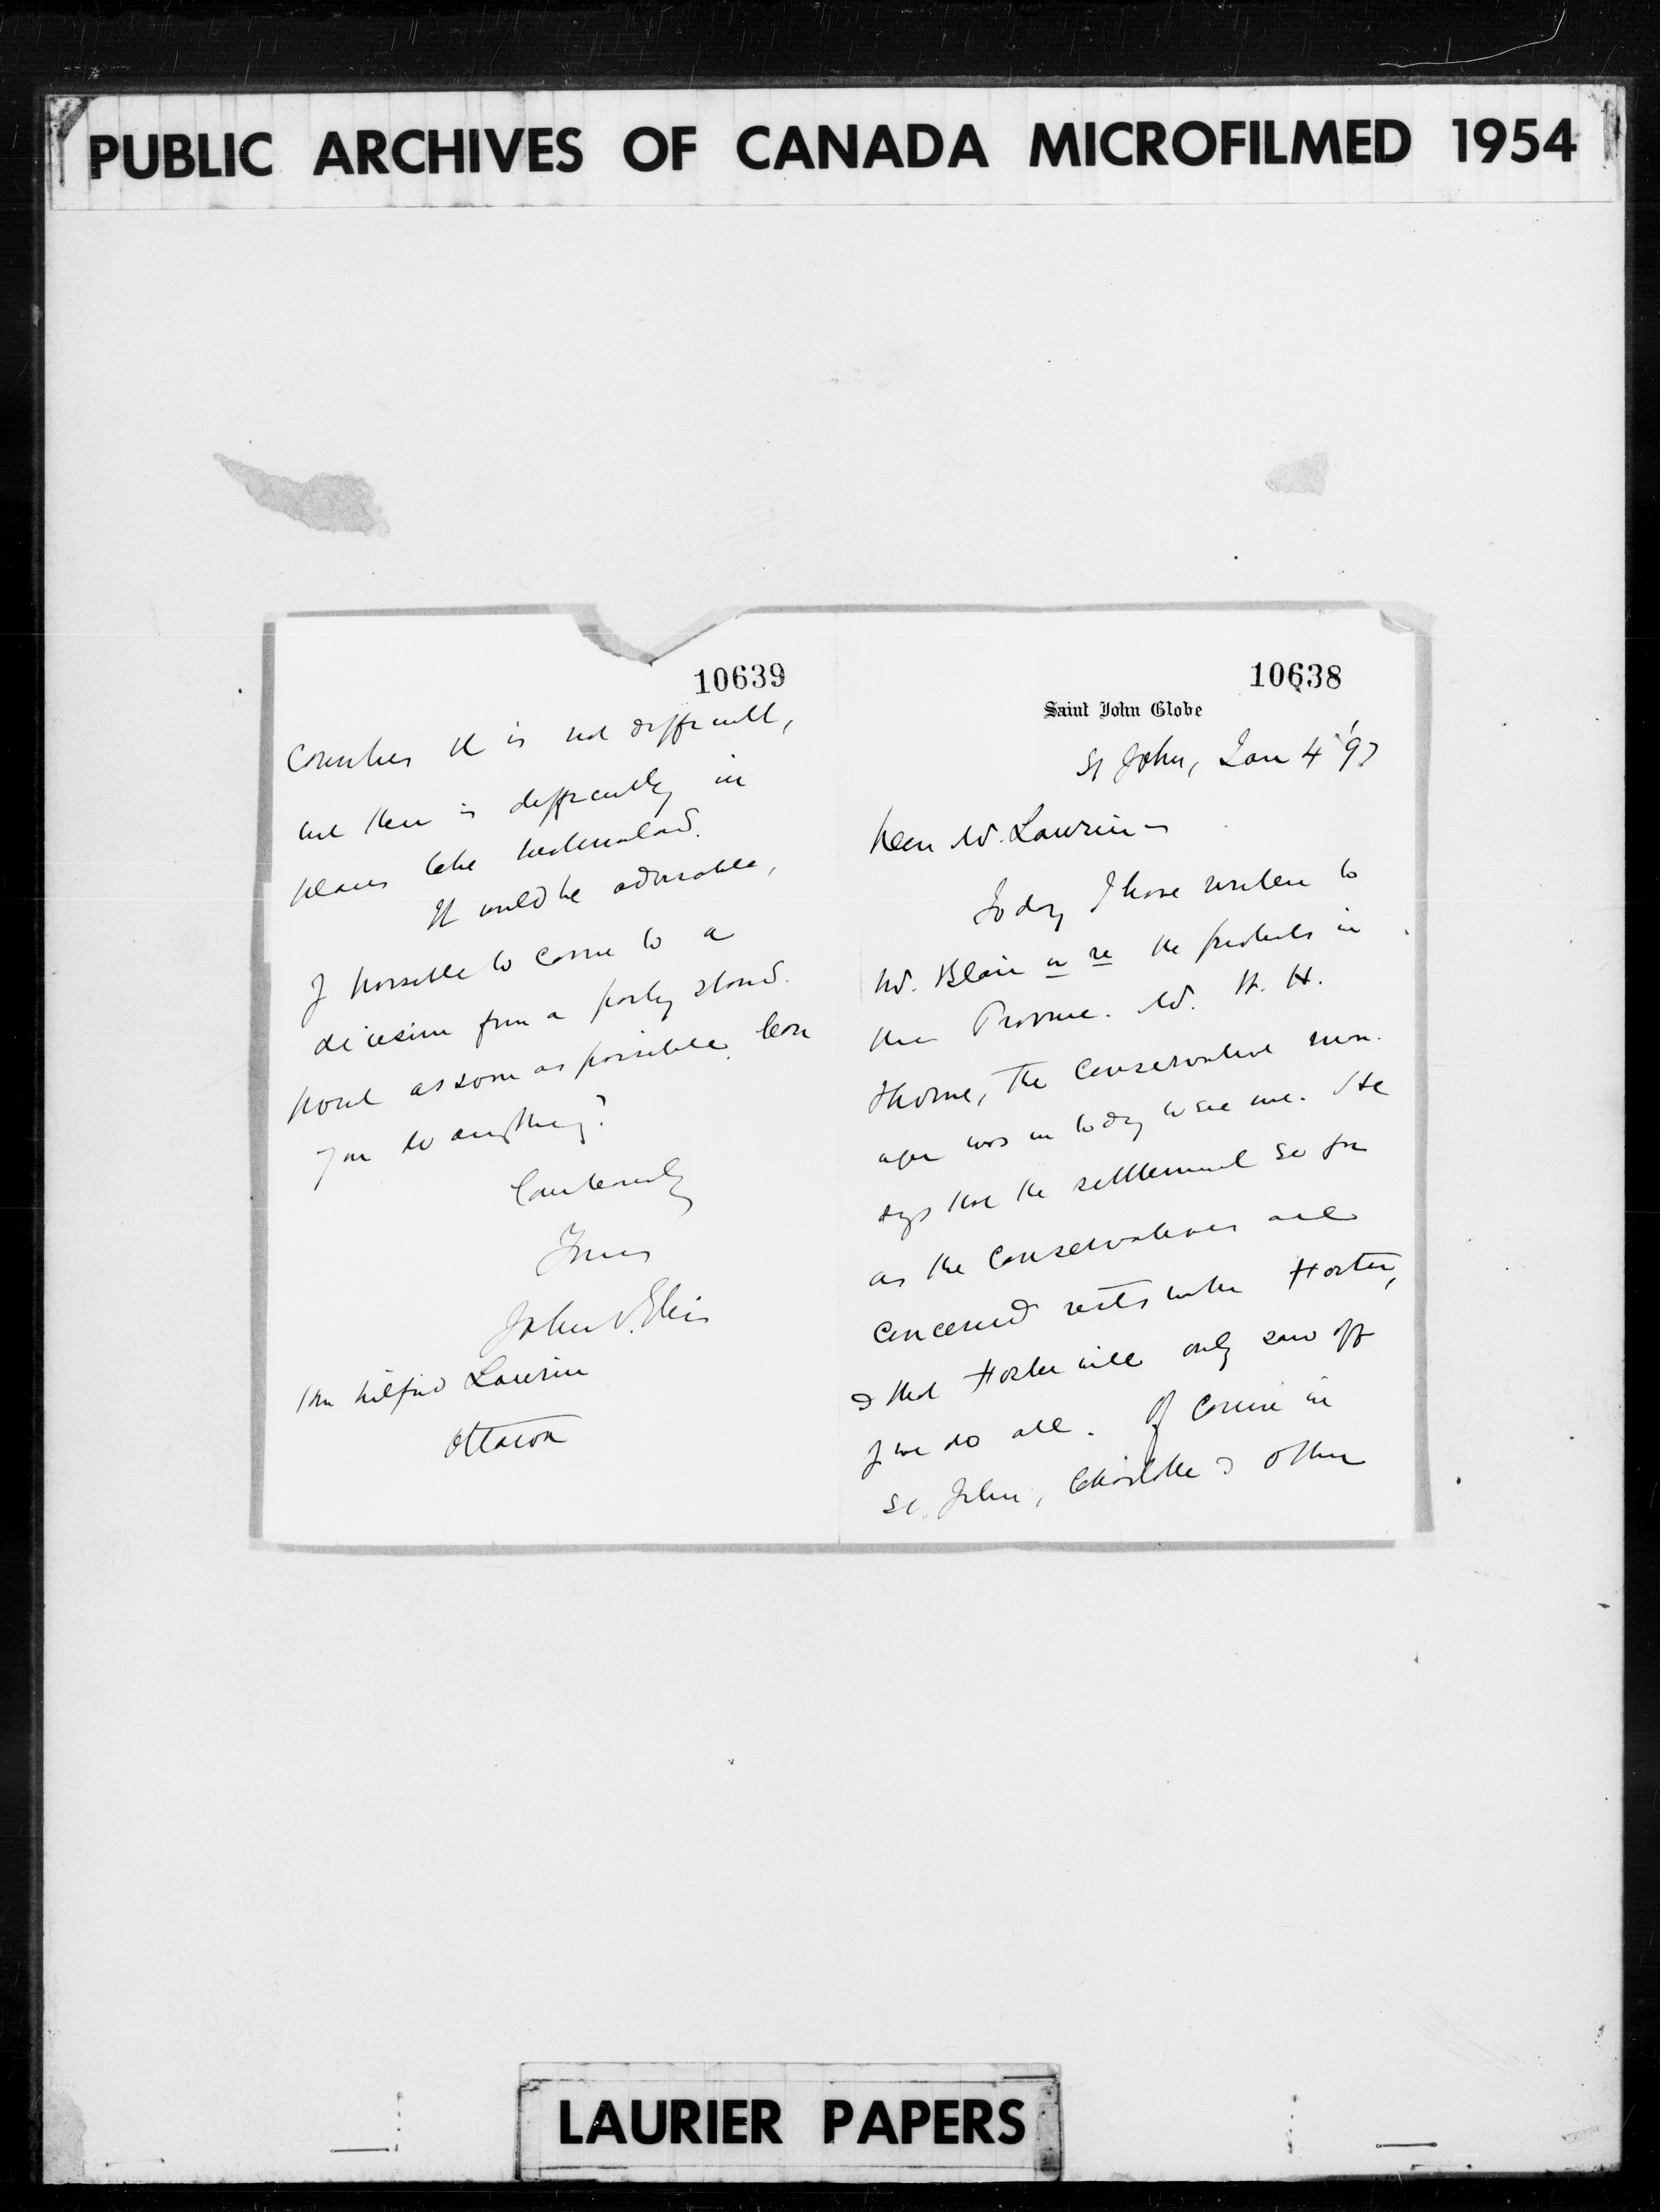 PUBLIC ARCHIVES OF CANADA MICROFILMED 1954
10638
Saint John Globe
St John, Jan 4 '97
Dear Mr. Laurier –
Today I have written to
Mr. Blair in re the protests in
this Province. Mr. W. H.
Thorne, the Conservative man-
ager was in today to see me. He
says that the settlement so far
as the Conservatives are
concerned rests with Foster,
& that Foster will only saw off
if we do all. Of course in
St. John, Charlotte & other
10639
Counties it is not difficult,
but there is difficulty in
places like Westmorland.
It would be advisable,
if possible to come to a
decision from a party stand-
point as soon as possible. Can
you do anything?
Yours
John V. Ellis
Hon Wilfrid Laurier
Ottawa
LAURIER PAPERS